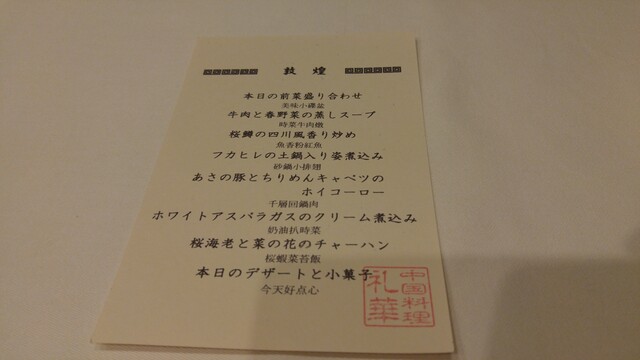 敦煌
本日の前菜盛り合わせ
美味小碟盆
牛肉と春野菜の蒸しスープ
時菜牛肉燉
桜鱒の四川風香り炒め
魚香粉紅魚
フカヒレの土鍋入り姿煮込み
砂鍋小排翅
あさの豚とちりめんキャベツの
ホイコーロー
千層回鍋肉
ホワイトアスパラガスのクリーム煮込み
奶油扒時菜
桜海老と菜の花のチャーハン
桜蝦菜苔飯
本日のデザートと小菓子
今天好点心
中国料理
礼華